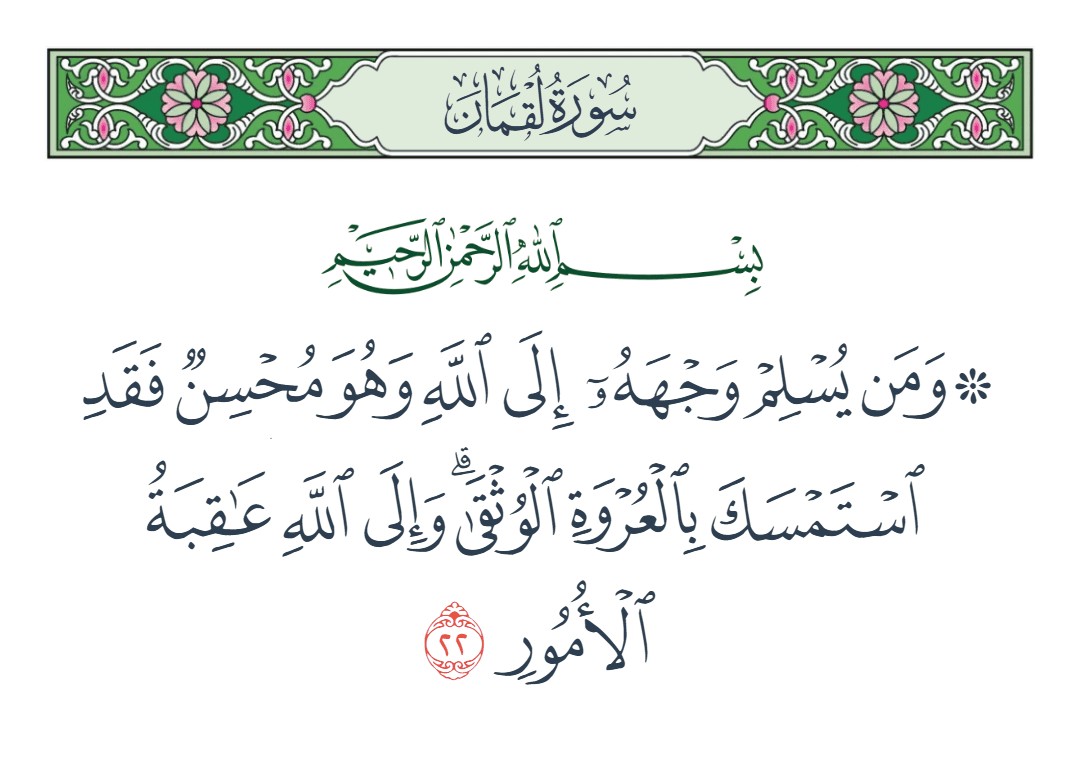 سُورَةُ لُقْمَانَ
بِسْمِ ٱللَّهِ ٱلرَّحْمَٰنِ ٱلرَّحِيمِ
۞ وَمَن يُسْلِمْ وَجْهَهُۥٓ إِلَى ٱللَّهِ وَهُوَ مُحْسِنٌ فَقَدِ
ٱسْتَمْسَكَ بِٱلْعُرْوَةِ ٱلْوُثْقَىٰ ۗ وَإِلَى ٱللَّهِ عَٰقِبَةُ
ٱلْأُمُورِ ٢٢